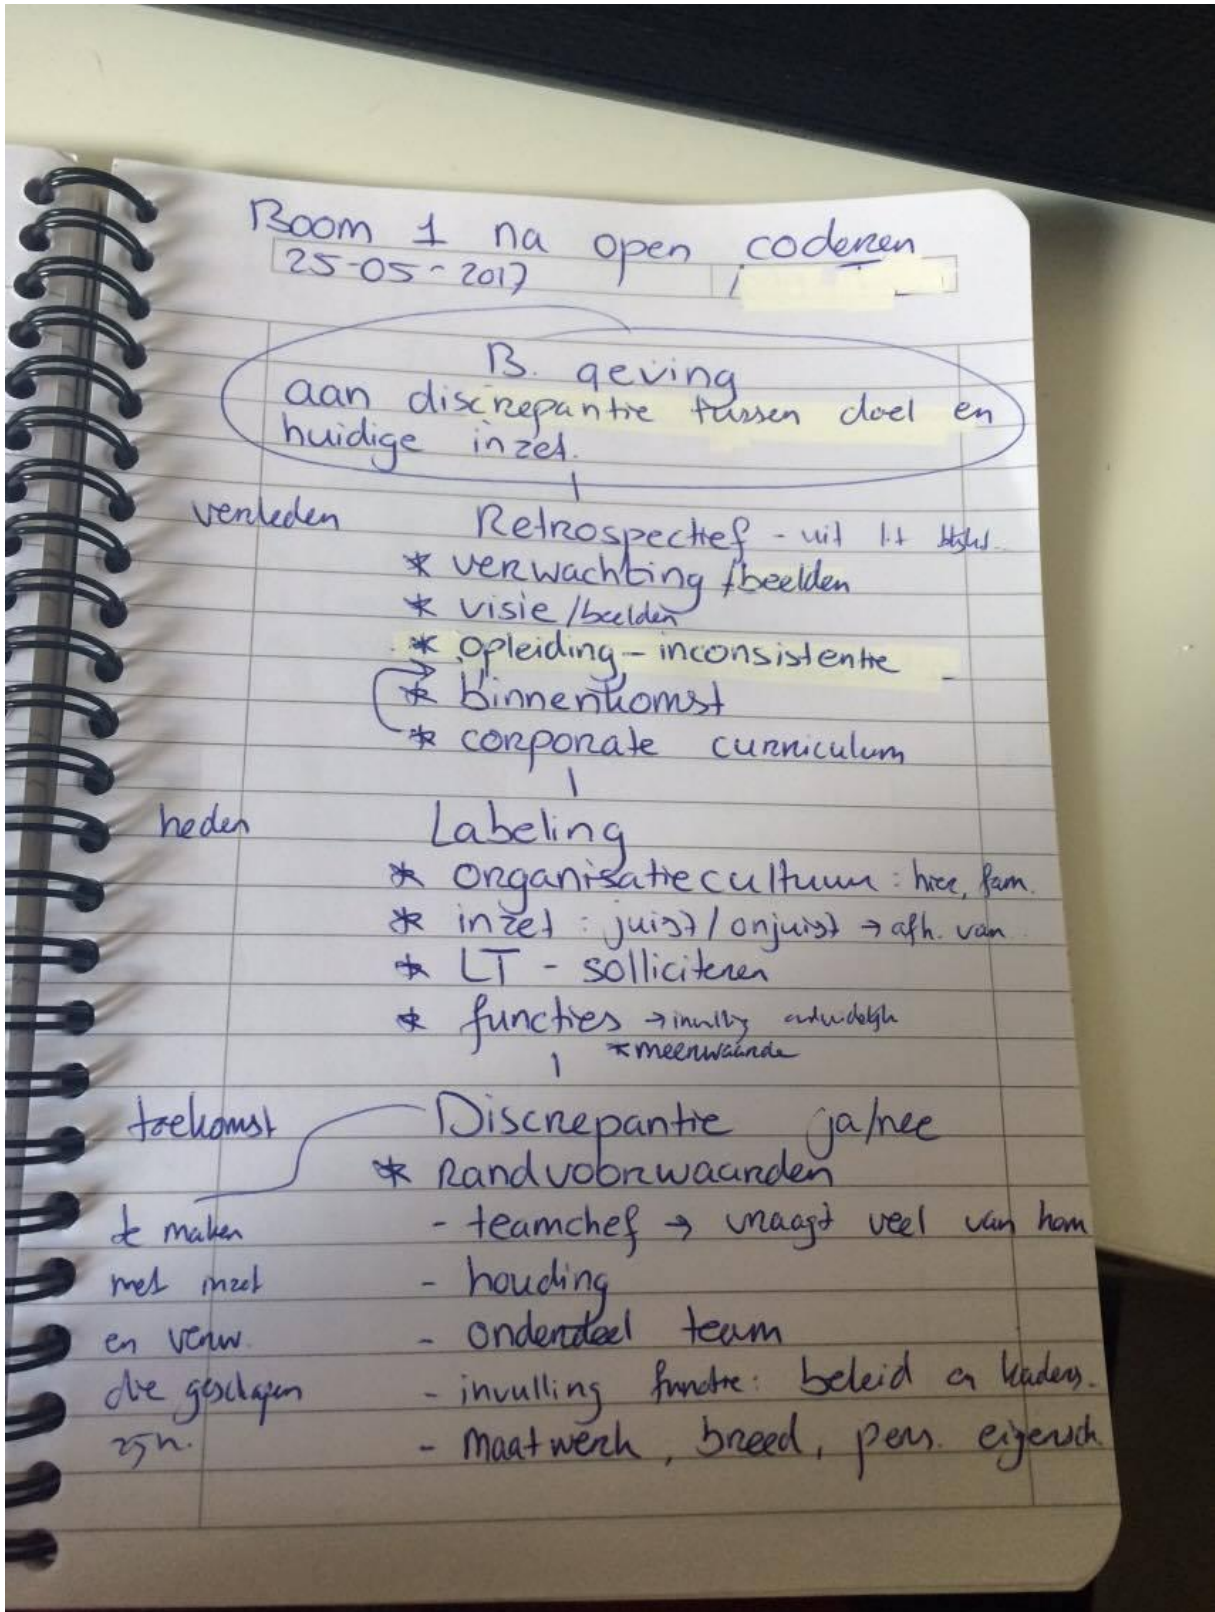 Boom 1 na open coderen
25-05-2017
B. geving
aan discrepantie tussen doel en
huidige inzet.
verleden Retrospectief - uit lit blijkt..
* verwachting /beelden
* visie /beelden
* opleiding - inconsistentie
* binnenkomst
* corporate curriculum
heden Labeling
* organisatiecultuur : hier, fam.
* inzet : juist / onjuist → afh. van
* LT - solliciteren
* functies → invulling onduidelijk
* meerwaarde
toekomst Discrepantie ja/nee
* Randvoorwaarden
te maken - teamchef → vraagt veel van hem
met inzet - houding
en verw. - onderdeel team
die geschapen - invulling functie: beleid en kaders.
zijn. - maatwerk, breed, pers. eigensch